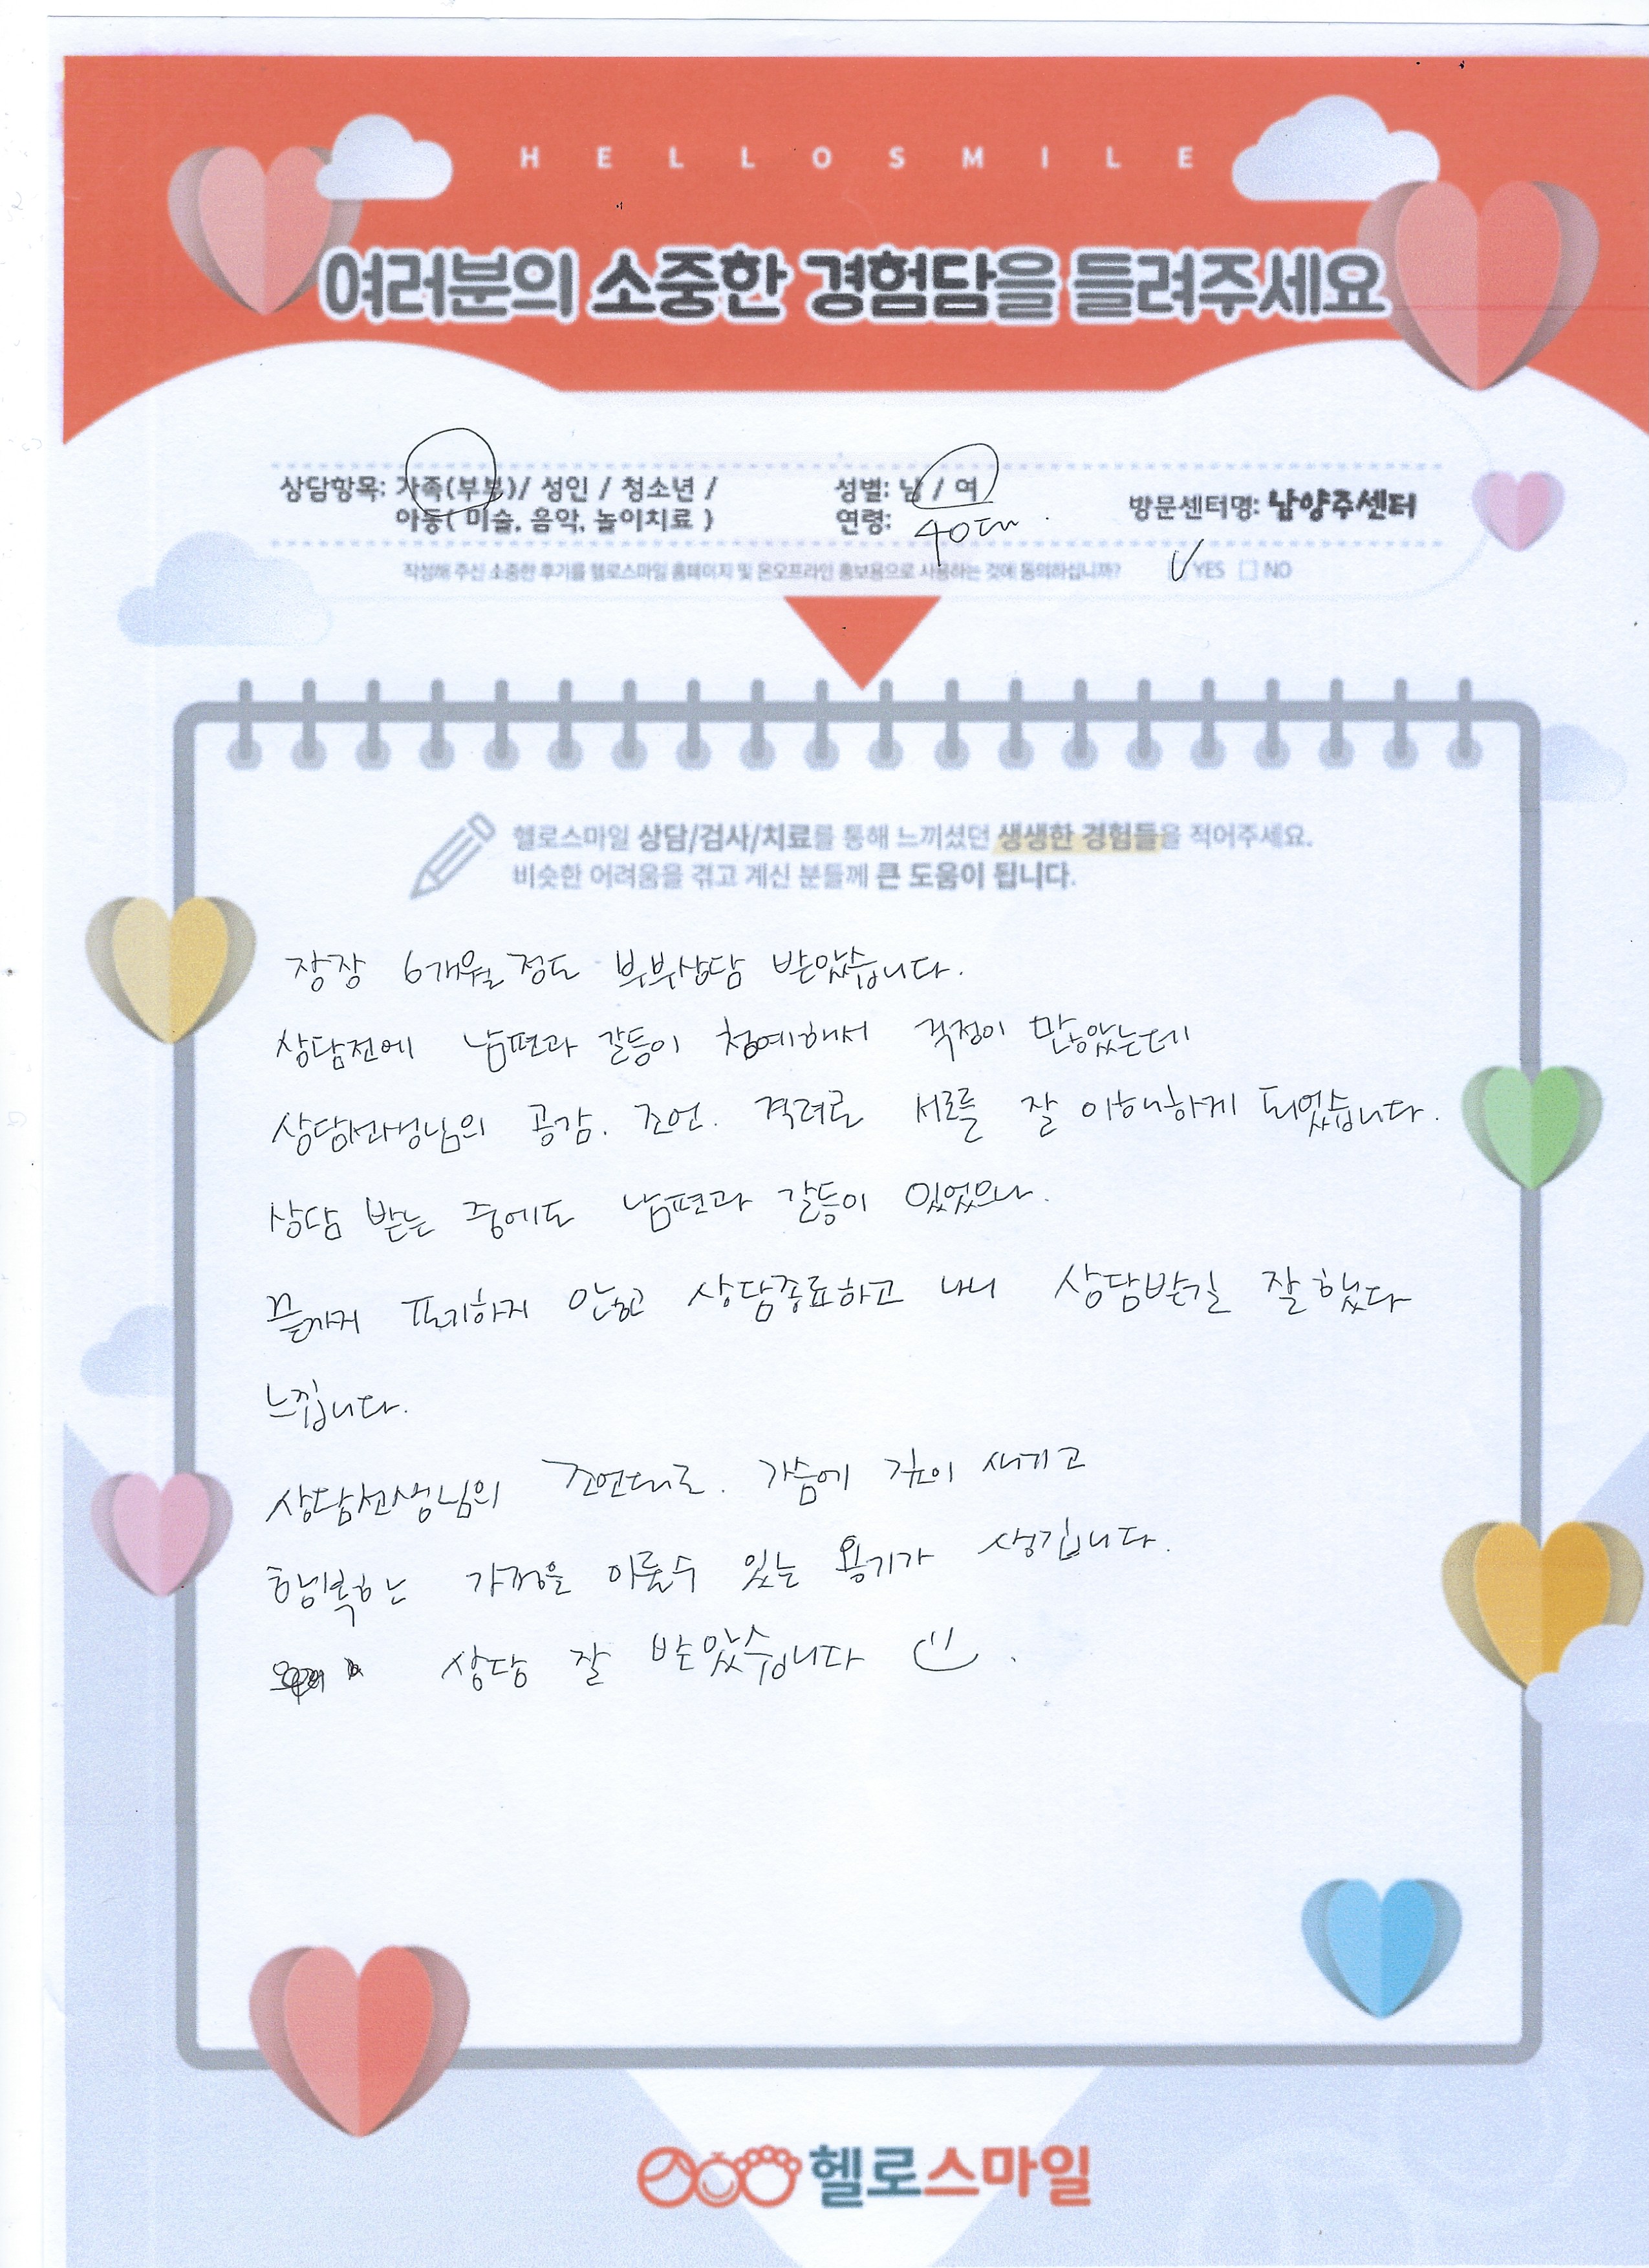 HELLOSMILE
여러분의 소중한 경험담을 들려주세요
상담항목: 가족(부부)/ 성인 / 청소년 /
아동( 미술, 음악, 놀이치료 )
성별: 남 / 여
연령: 40대
방문센터명: 남양주센터
작성해 주신 소중한 후기를 헬로스마일 홈페이지 및 온오프라인 홍보용으로 사용하는 것에 동의하십니까? YES NO
헬로스마일 상담/검사/치료를 통해 느끼셨던 생생한 경험들을 적어주세요.
비슷한 어려움을 겪고 계신 분들께 큰 도움이 됩니다.
장장 6개월 정도 부부상담 받았습니다.
상담전에 남편과 갈등이 첨예해서 걱정이 많았는데
상담선생님의 공감. 조언. 격려로 서로를 잘 이해하게 되었습니다.
상담 받는 중에도 남편과 갈등이 있었으나.
끝까지 포기하지 않고 상담종료하고 나니 상담받길 잘했다
느낍니다.
상담선생님의 조언대로. 가슴에 깊이 새기고
행복한 가정을 이룰수 있는 용기가 생깁니다.
상담 잘 받았습니다
헬로스마일